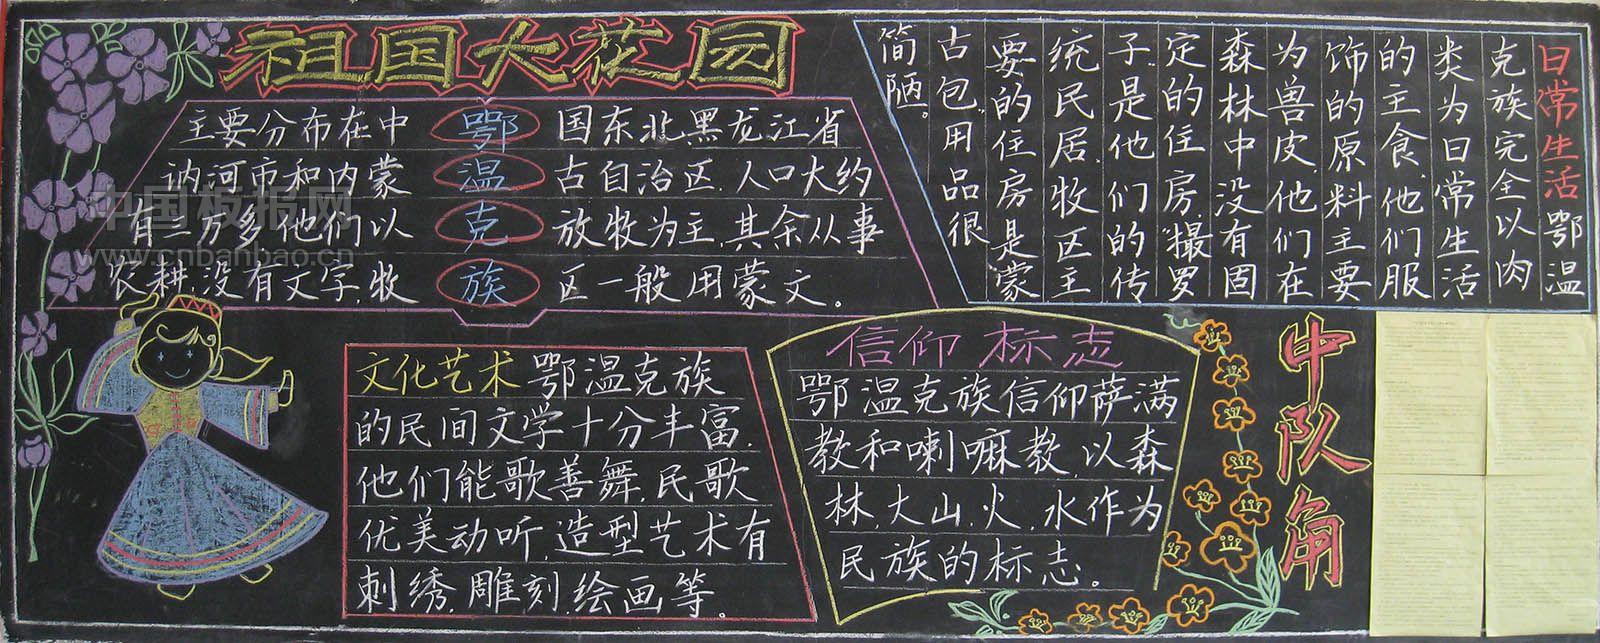 祖国大花园
主要分布在中 鄂 国东北黑龙江省
讷河市和内蒙 温 古自治区,人口大约
有三万多他们以 克 放牧为主,其余从事
农耕,没有文字,牧 族 区一般用蒙文。
日常生活 鄂温
克族完全以肉
类为日常生活
的主食,他们服
饰的原料主要
为兽皮,他们在
森林中没有固
定的住房"撮罗
子"是他们的传
统民居,牧区主
要的住房是蒙
古包,用品很
简陋。
文化艺术 鄂温克族
的民间文学十分丰富,
他们能歌善舞,民歌
优美动听,造型艺术有
刺绣,雕刻,绘画等。
信仰标志
鄂温克族信仰萨满
教和喇嘛教,以森
林,大山火,水作为
民族的标志。
中队角
中国板报网
www.cnbanbao.cn